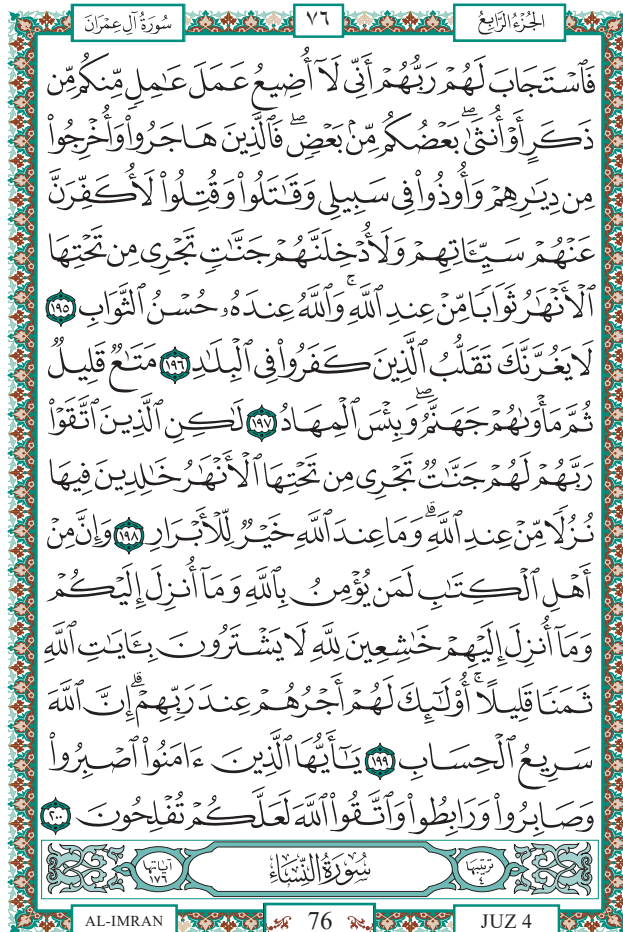 سُورَةُ آلِ عِمْرَانَ ٧٦ الجُزْءُ الرَّابِعُ
فَٱسْتَجَابَ لَهُمْ رَبُّهُمْ أَنِّى لَآ أُضِيعُ عَمَلَ عَـٰمِلٍ مِّنكُم مِّن
ذَكَرٍ أَوْ أُنثَىٰۖ بَعْضُكُم مِّنۢ بَعْضٍۖ فَٱلَّذِينَ هَاجَرُوا۟ وَأُخْرِجُوا۟
مِن دِيَـٰرِهِمْ وَأُوذُوا۟ فِى سَبِيلِى وَقَـٰتَلُوا۟ وَقُتِلُوا۟ لَأُكَفِّرَنَّ
عَنْهُمْ سَيِّـَٔاتِهِمْ وَلَأُدْخِلَنَّهُمْ جَنَّـٰتٍ تَجْرِى مِن تَحْتِهَا
ٱلْأَنْهَـٰرُ ثَوَابًا مِّنْ عِندِ ٱللَّهِۗ وَٱللَّهُ عِندَهُۥ حُسْنُ ٱلثَّوَابِ ١٩٥
لَا يَغُرَّنَّكَ تَقَلُّبُ ٱلَّذِينَ كَفَرُوا۟ فِى ٱلْبِلَـٰدِ ١٩٦ مَتَـٰعٌ قَلِيلٌ
ثُمَّ مَأْوَىٰهُمْ جَهَنَّمُۖ وَبِئْسَ ٱلْمِهَادُ ١٩٧ لَـٰكِنِ ٱلَّذِينَ ٱتَّقَوْا۟
رَبَّهُمْ لَهُمْ جَنَّـٰتٌ تَجْرِى مِن تَحْتِهَا ٱلْأَنْهَـٰرُ خَـٰلِدِينَ فِيهَا
نُزُلًا مِّنْ عِندِ ٱللَّهِۗ وَمَا عِندَ ٱللَّهِ خَيْرٌ لِّلْأَبْرَارِ ١٩٨ وَإِنَّ مِنْ
أَهْلِ ٱلْكِتَـٰبِ لَمَن يُؤْمِنُ بِٱللَّهِ وَمَآ أُنزِلَ إِلَيْكُمْ
وَمَآ أُنزِلَ إِلَيْهِمْ خَـٰشِعِينَ لِلَّهِ لَا يَشْتَرُونَ بِـَٔايَـٰتِ ٱللَّهِ
ثَمَنًا قَلِيلًاۗ أُو۟لَـٰٓئِكَ لَهُمْ أَجْرُهُمْ عِندَ رَبِّهِمْۗ إِنَّ ٱللَّهَ
سَرِيعُ ٱلْحِسَابِ ١٩٩ يَـٰٓأَيُّهَا ٱلَّذِينَ ءَامَنُوا۟ ٱصْبِرُوا۟
وَصَابِرُوا۟ وَرَابِطُوا۟ وَٱتَّقُوا۟ ٱللَّهَ لَعَلَّكُمْ تُفْلِحُونَ ٢٠٠
ترتيبها ٤ سُورَةُ النِّسَاءِ آياتها ١٧٦
AL-IMRAN 76 JUZ 4